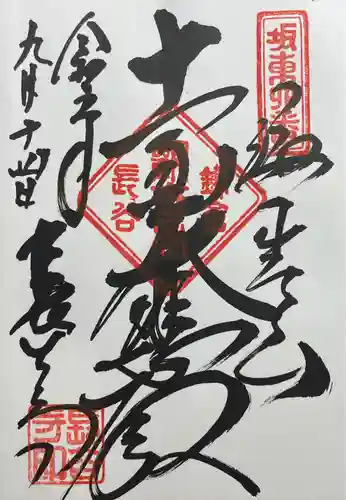 坂東第四番
海光山
十一面大悲殿
鎌倉
長谷
令和元年
九月十四日
長谷寺